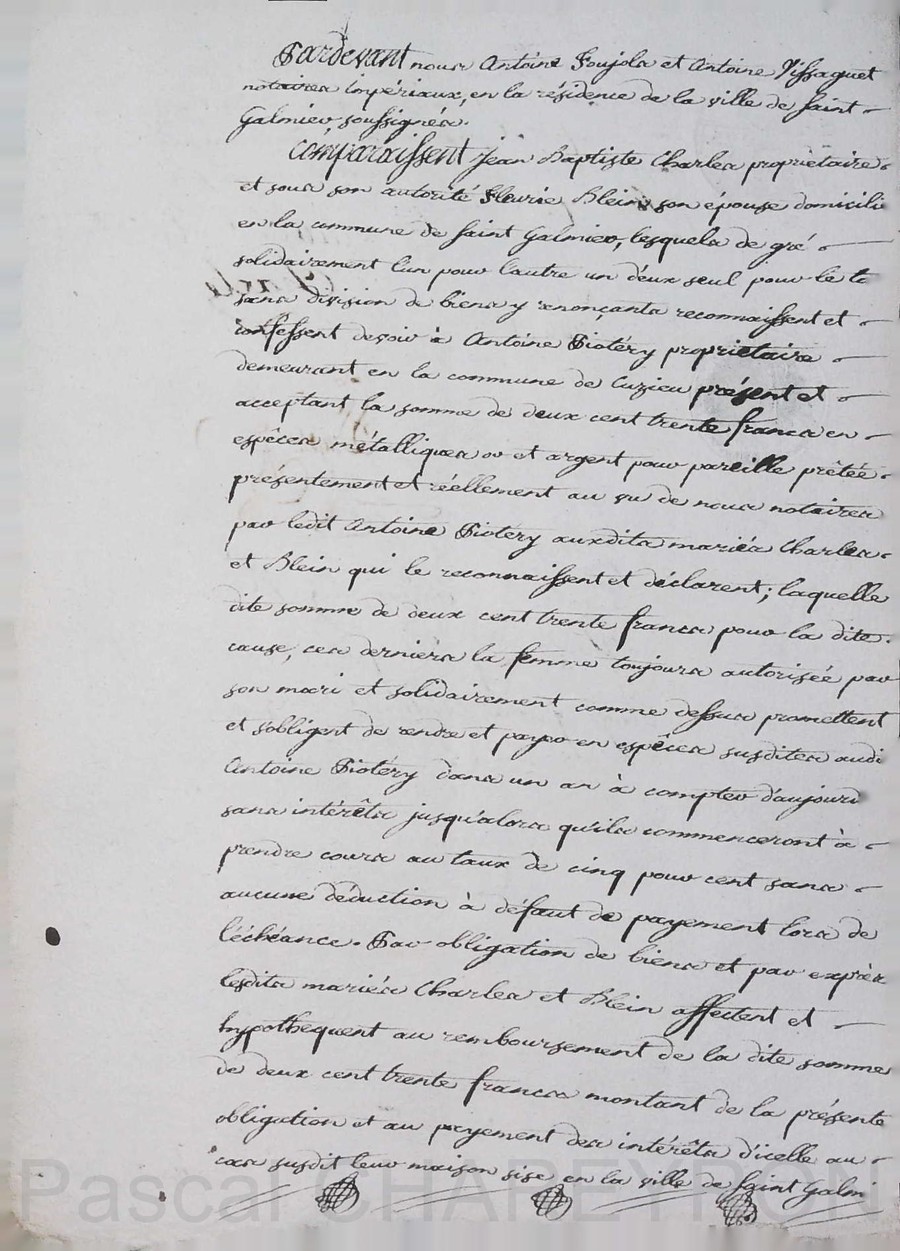 Pardevant nous Antoine Soujola et Antoine Vissaguet
notaires impériaux, en la résidence de la ville de saint
Galmier, soussignés.
Comparaissent Jean Baptiste Charles propriétaire
et sous son autorité Fleurie Blein son épouse domicilié
en la commune de saint Galmier, lesquels de gré
solidairement l'un pour l'autre un d'eux seul pour le to
sans division de biens y renonçants reconnaissent et
confessent devoir à Antoine Piotéry propriétaire
demeurant en la commune de Cuzieu présent et
acceptant la somme de deux cent trente francs en
espèces métalliques or et argent pour pareille prêtée
présentement et réellement au vu de nous notaires
par ledit Antoine Piotéry auxdits mariés Charles
et Blein qui le reconnaissent et déclarent; laquelle
dite somme de deux cent trente francs pour la dite
cause, ces derniers la femme toujours autorisée par
son mari et solidairement comme dessus promettent
et s'obligent de rendre et payer en espèces susdites audi
Antoine Piotéry dans un an à compter d'aujourd
sans intérêts jusqu'alors qu'ils commenceront à
prendre cours au taux de cinq pour cent sans
aucune deduction à défaut de payement lors de
l'échéance. Par obligation de biens et par exprès
lesdits mariés Charles et Blein affectent et
hypothequent au remboursement de la dite somme
de deux cent trente francs montant de la présente
obligation et au payement des intérêts d'icelle au
cas susdit leur maison sise en la ville de saint Galmi
Pascal CHAPEYRON